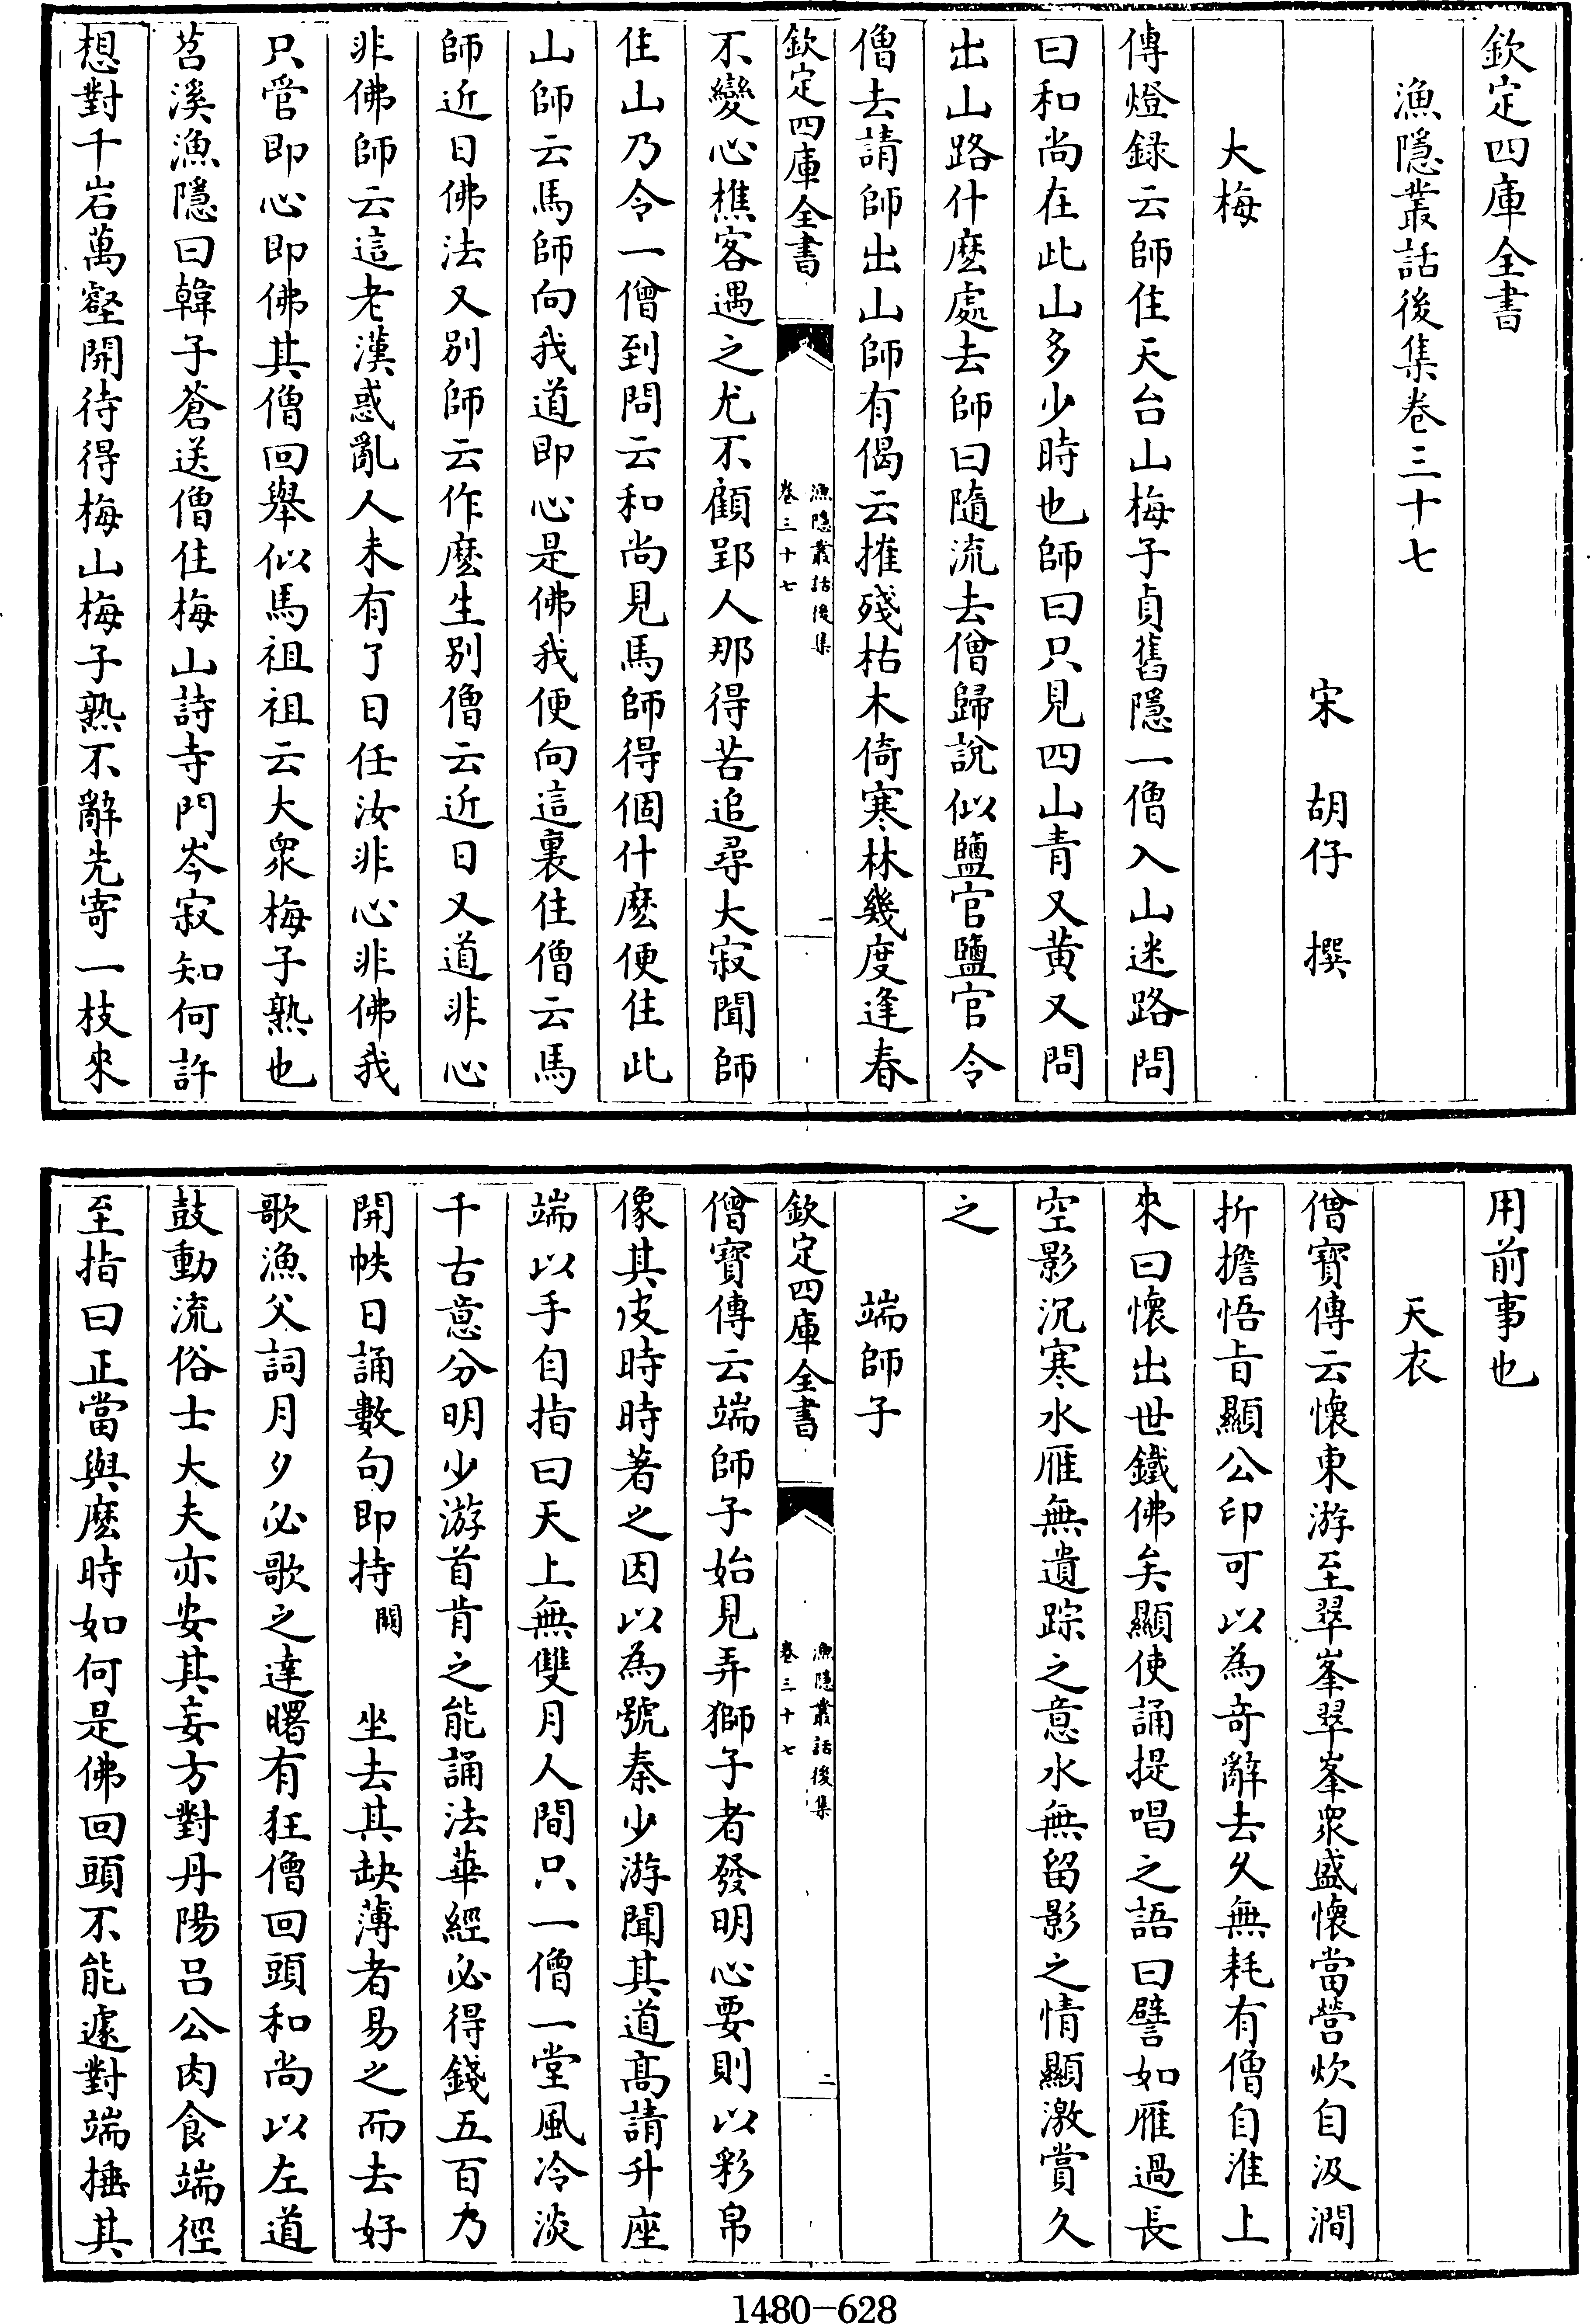 欽定四庫全書
漁隱叢話後集卷三十七
宋　胡仔　撰
大梅
傳燈録云師住天台山梅子貞舊隱一僧入山迷路問
曰和尚在此山多少時也師曰只見四山青又黄又問
出山路什麽處去師曰隨流去僧歸說似鹽官鹽官令
僧去請師出山師有偈云摧殘枯木倚寒林幾度逢春
欽定四庫全書
漁隱叢話後集
卷三十七
一
不變心樵客遇之尤不顧郢人那得苦追尋大寂聞師
住山乃令一僧到問云和尚見馬師得個什麽便住此
山師云馬師向我道即心是佛我便向這裏住僧云馬
師近日佛法又別師云作麽生別僧云近日又道非心
非佛師云這老漢惑亂人未有了日任汝非心非佛我
只管即心即佛其僧回舉似馬祖祖云大衆梅子熟也
苕溪漁隱曰韓子蒼送僧住梅山詩寺門岑寂知何許
想對千岩萬壑開待得梅山梅子熟不辭先寄一枝來
用前事也
天衣
僧寶傳云懷東游至翠峯翠峯衆盛懷當營炊自汲澗
折擔悟旨顯公印可以為奇辭去久無耗有僧自淮上
來曰懷出世鐵佛矣顯使誦提唱之語曰譬如雁過長
空影沉寒水雁無遺踪之意水無留影之情顯激賞久
之
端師子
欽定四庫全書
漁隱叢話後集
卷三十七
二
僧寶傳云端師子始見弄獅子者發明心要則以彩帛
像其皮時時著之因以為號秦少游聞其道高請升座
端以手自指曰天上無雙月人間只一僧一堂風冷淡
千古意分明少游首肯之能誦法華經必得錢五百乃
開帙日誦數句即持闕　坐去其缺薄者易之而去好
歌漁父詞月夕必歌之達曙有狂僧回頭和尚以左道
鼓動流俗士大夫亦安其妄方對丹陽吕公肉食端徑
至指曰正當與麽時如何是佛回頭不能遽對端捶其
1480-628